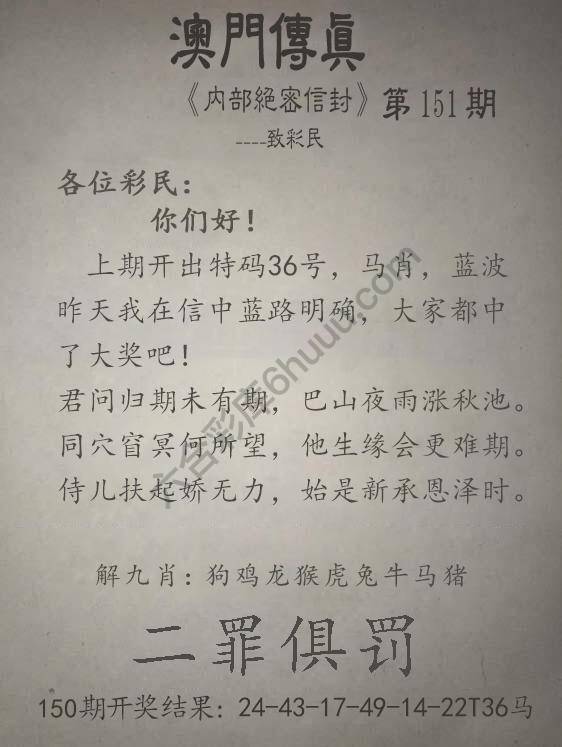 澳門傳真
《内部絕密信封》第151期
----致彩民
各位彩民:
你们好!
上期开出特码36号,马肖,蓝波
昨天我在信中蓝路明确,大家都中
了大奖吧!
君问归期未有期,巴山夜雨涨秋池。
同穴窅冥何所望,他生缘会更难期。
侍儿扶起娇无力,始是新承恩泽时。
解九肖:狗鸡龙猴虎兔牛马猪
二罪俱罚
150期开奖结果:24-43-17-49-14-22T36马
六合彩库6huuu.com